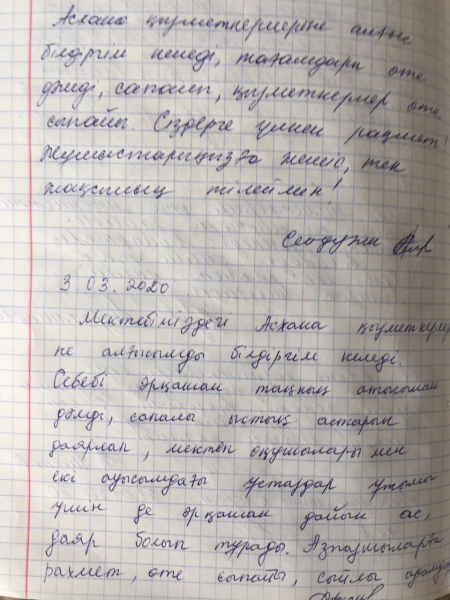 Асхана қызметкерлеріне алғыс
білдіргім келеді, тағамдары өте
дәмді, сапалы, қызметкерлер өте
сыпайы. Сіздерге үлкен рақмет!
Жұмыстарыңызға жеміс, тек
жақсылық тілеймін!
3 03. 2020
Мектебіміздегі Асхана қызметкерлері
не алғысымды білдіргім келеді.
Себебі әрқашан таңның атысымен
дәмді, сапалы ыстық астарын
даярлап, мектеп оқушылары мен
екі ауысымдағы ұстаздар ұжымы
үшін де әрқашан дайын ас,
даяр болып тұрады. Аспазшыларға
рахмет, өте сыпайы, сыйлы адамдар